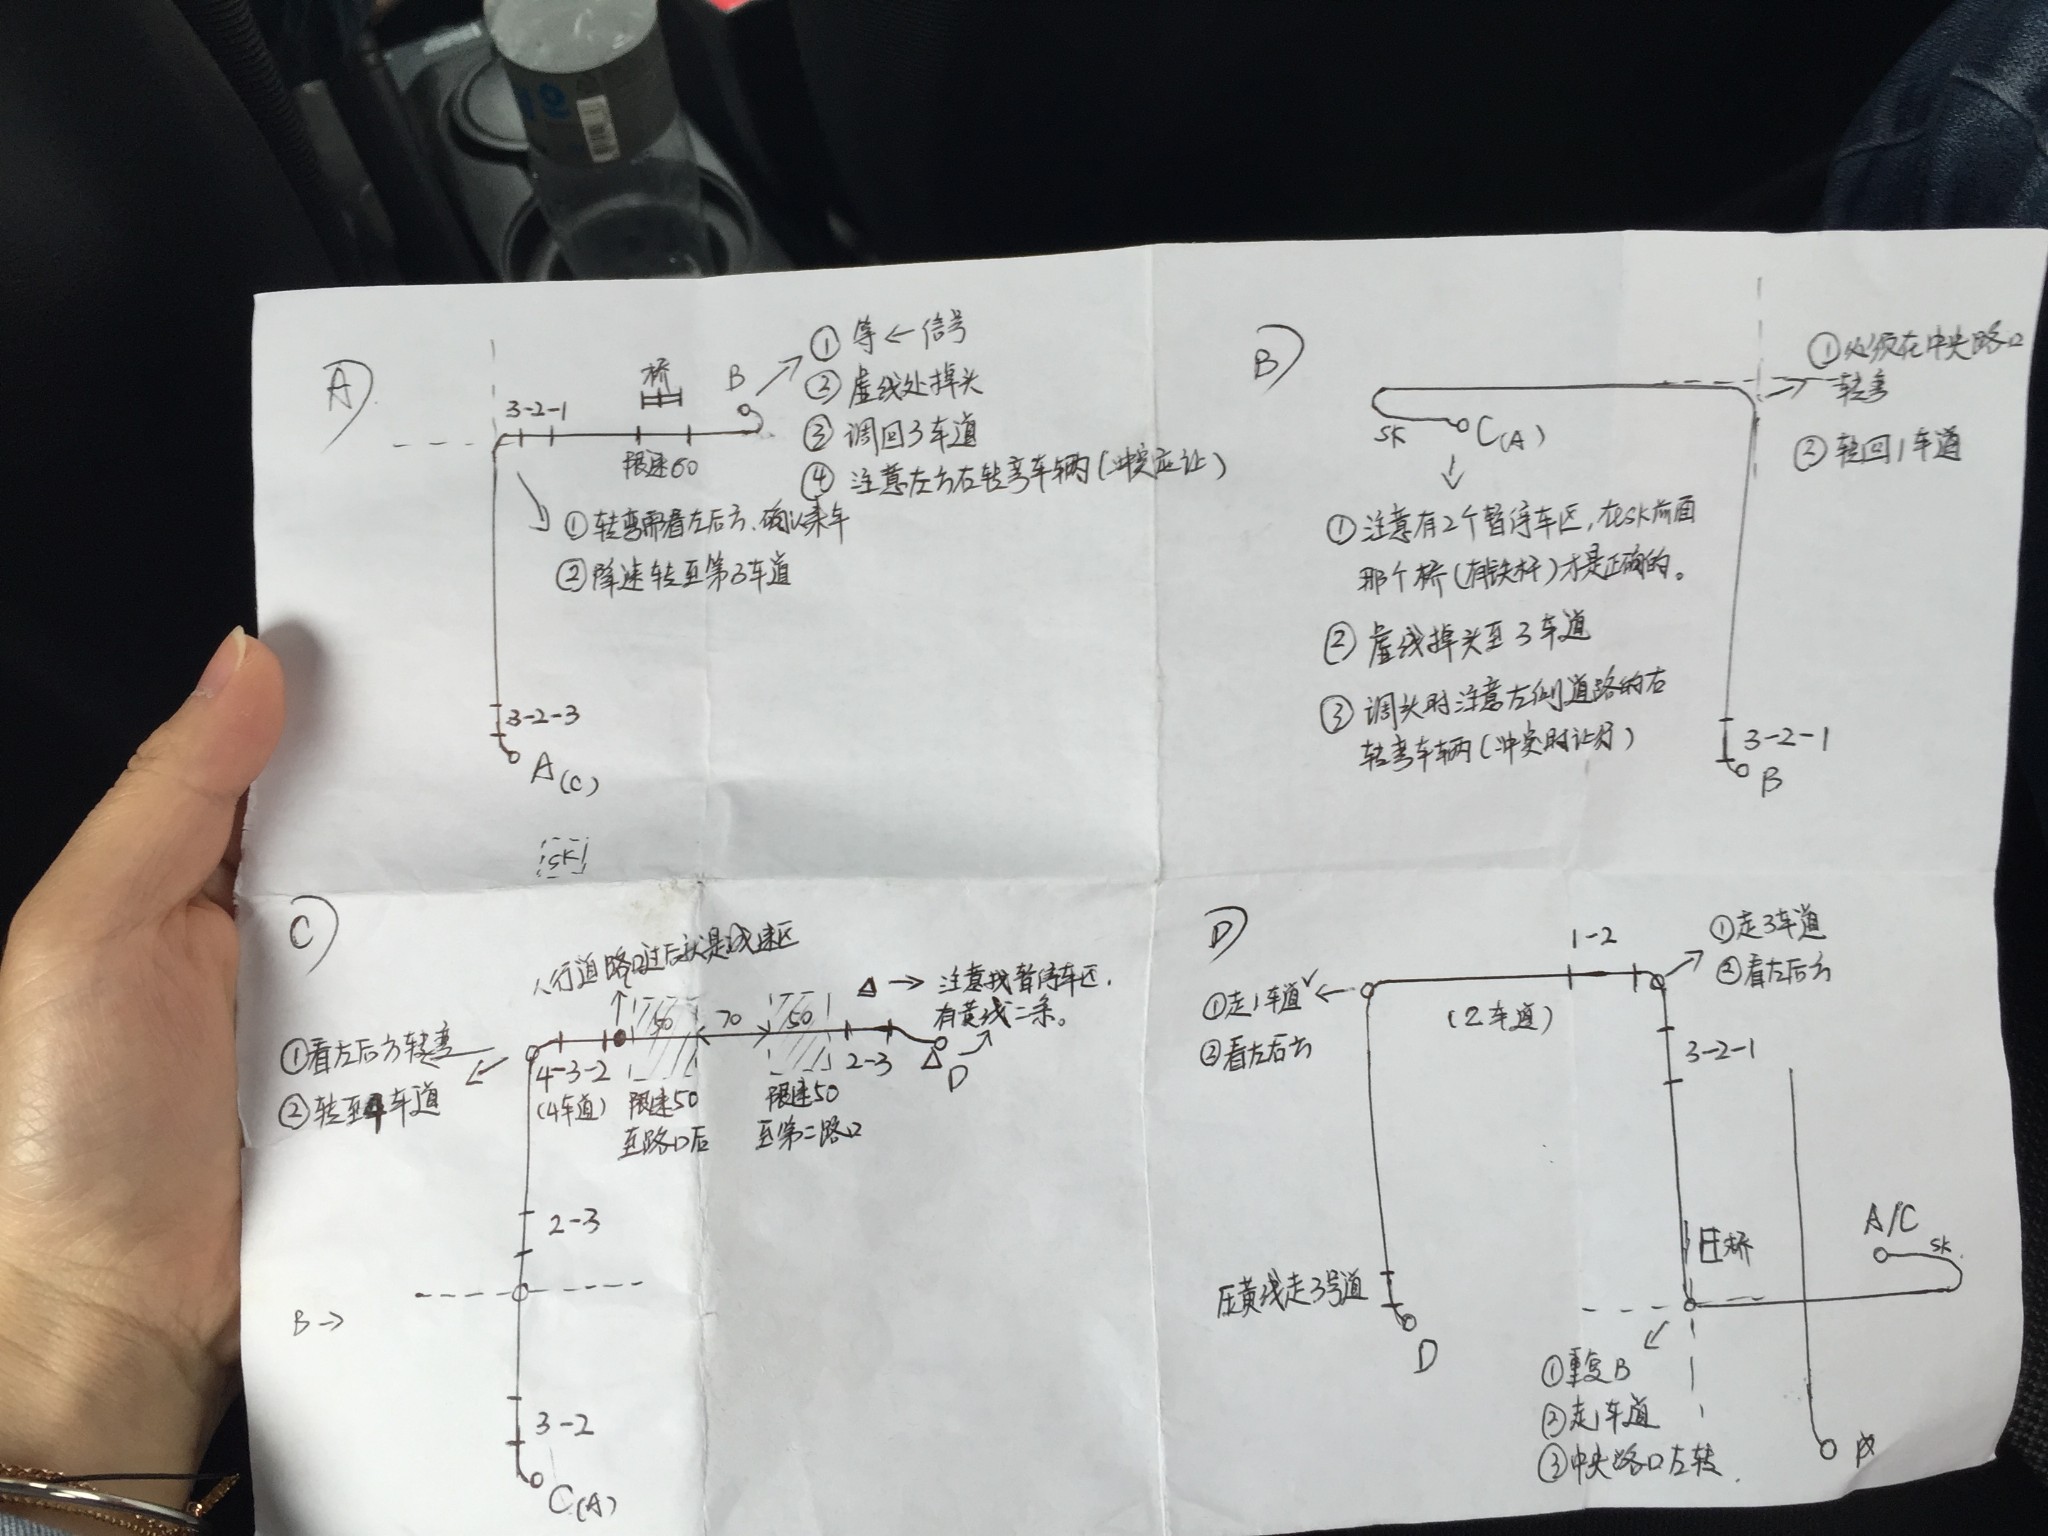 A)
桥
B
① 等 ← 信号
② 虚线处掉头
③ 调回3车道
④ 注意左方右转弯车辆(冲突应让)
3-2-1
限速60
① 转弯需看左后方、确认来车
② 降速转至第3车道
3-2-3
A(C)
SK
B)
① 必须在中央路口
转弯
② 转回1车道
SK
C(A)
① 注意有2个暂停车区,在SK前面
那个桥(有铁杆)才是正确的。
② 虚线掉头至3车道
③ 调头时注意左侧道路的右
转弯车辆(冲突时让行)
3-2-1
B
C)
人行道路口过后就是减速区
△ → 注意找暂停车区,
有黄线二条。
50
70
50
①看左后方转弯
②转至4车道
4-3-2
(4车道)
限速50
至路口后
限速50
至第二路口
2-3
△
D
2-3
B→
3-2
C(A)
D)
1-2
①走3车道
②看左后方
①走1车道
②看左后方
(2车道)
3-2-1
桥
A/C
SK
压黄线走3号道
D
①重复B
②走1车道
③中央路口左转.